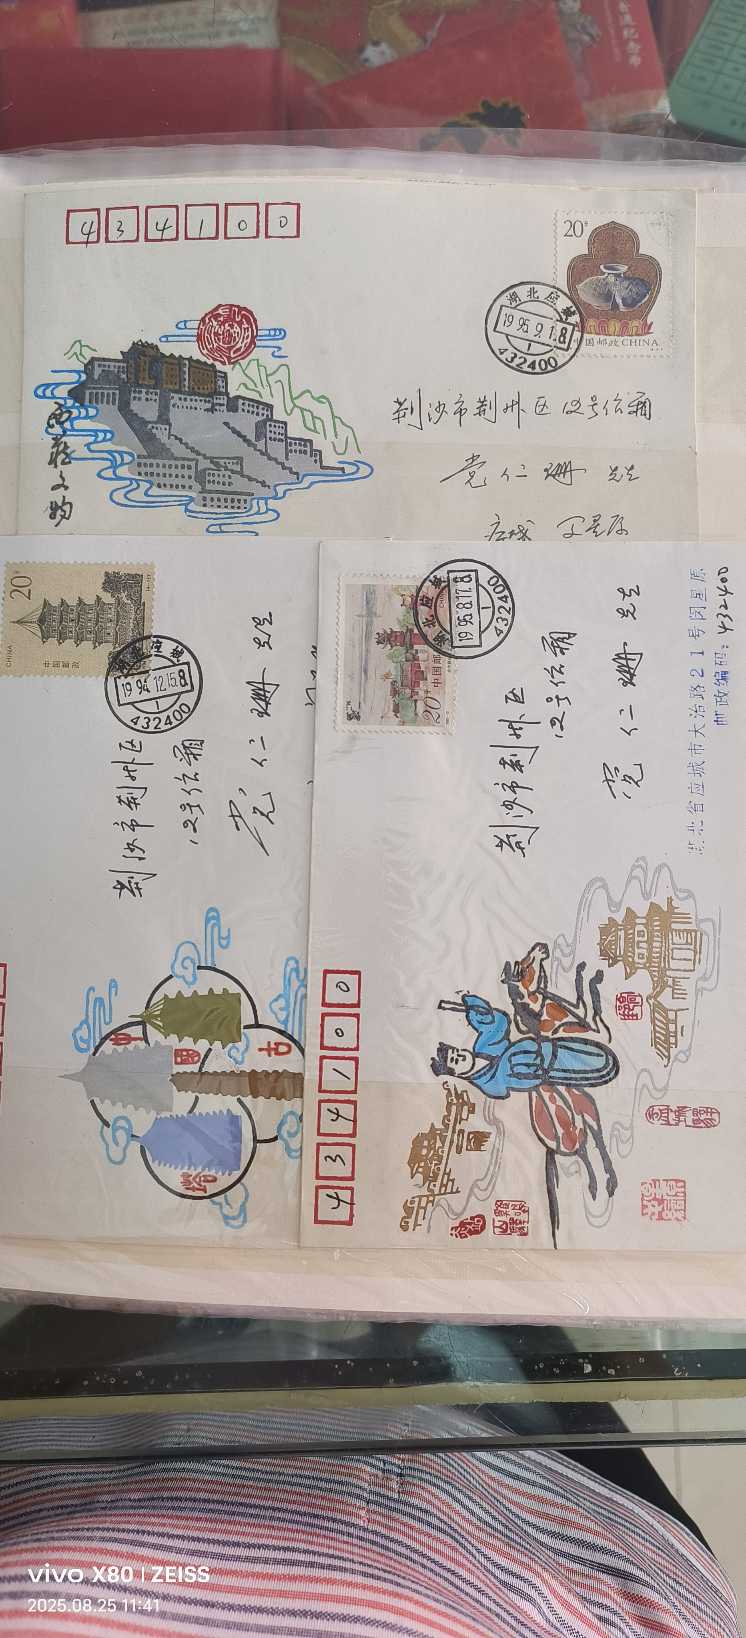 4 3 4 1 0 0
20分
中国邮政 CHINA
湖北应城
1995.9.1.8
432400
荆沙市荆州区12号信箱
党仁珊 先生
应城
西藏文物
20分
CHINA
中国邮政
应城
1994.12.15.8
432400
荆沙市荆州区
12号信箱
党仁珊 先生
中国古塔
20分
中国邮
应城
1995.8.17.8
432400
荆沙市荆州区
12号信箱
党仁珊 先生
北省应城市大治路21号闵星原
邮政编码:432400
4 3 4 1 0 0
vivo X80 | ZEISS
2025.08.25 11:41